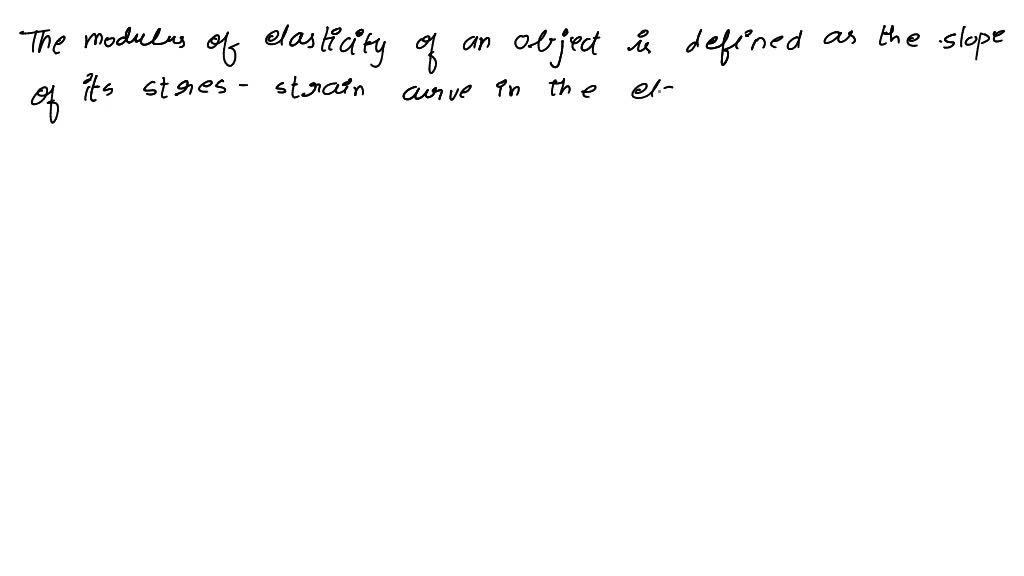 The modulus of elasticity of an object is defined as the slope
of its stres - strain curve in the el-